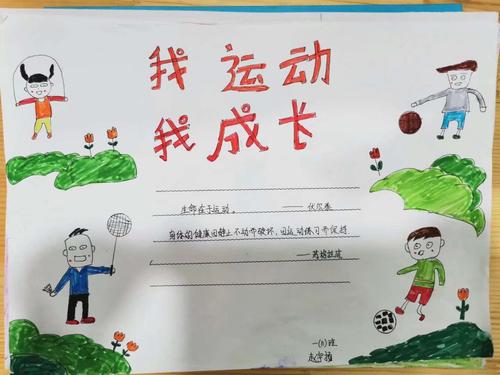 我运动
我成长
生命在于运动。 ——伏尔泰
身体的健康因静止不动而破坏，因运动练习而保持
——苏格拉底
一(8)班